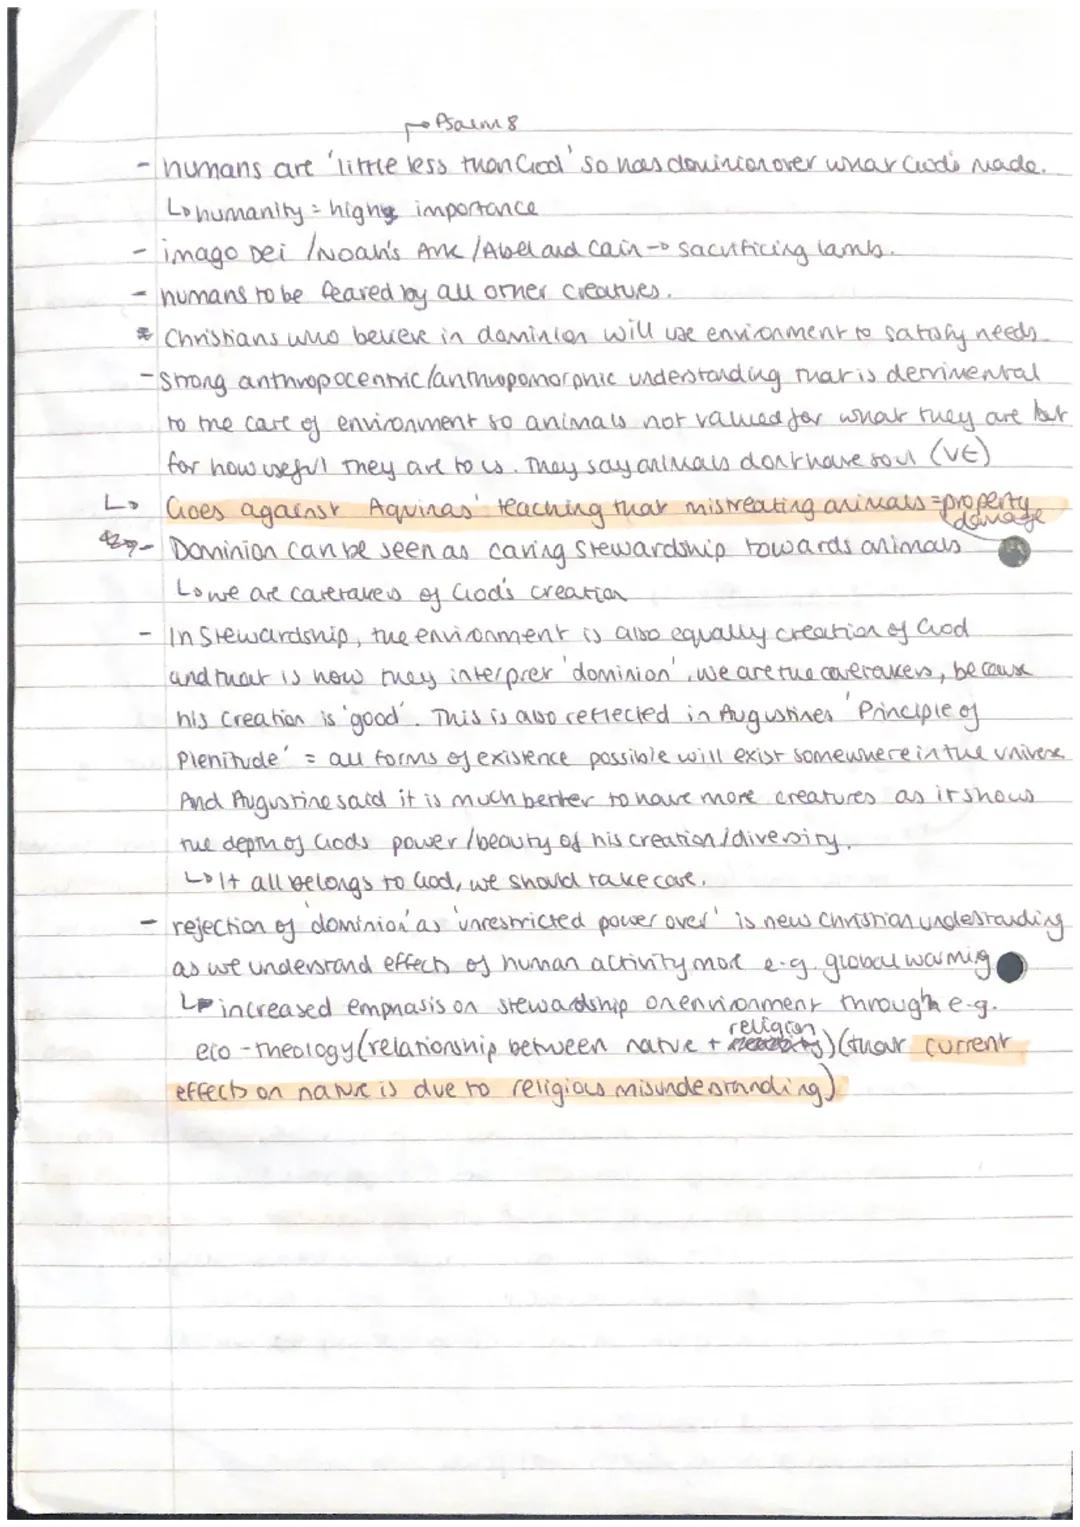 ↱ Psalm 8
- humans are 'little less than God' so has dominion over what God's made.
↳ humanity = highly importance
- imago Dei / Noah's Ark / Abel and Cain → sacrificing lamb.
- humans to be feared by all other creatures.
* Christians who believe in dominion will use environment to satisfy needs
- Strong anthropocentric/anthropomorphic understanding that is detrimental
to the care of environment so animals not valued for what they are but
for how useful they are to us. They say animals don't have soul (VE)
↳ Goes against Aquinas' teaching that mistreating animals = property
damage
- Dominion can be seen as caring stewardship towards animals
↳ we are caretakers of God's creation
- In Stewardship, the environment is also equally creation of God
and that is how they interpret 'dominion', we are the caretakers, because
his creation is 'good'. This is also reflected in Augustines 'Principle of
Plenitude' = all forms of existence possible will exist somewhere in the universe
And Augustine said it is much better to have more creatures as it shows
the depth of Gods power / beauty of his creation / diversity.
↳ It all belongs to God, we should take care.
- rejection of 'dominion' as 'unrestricted power over' is new Christian understanding
as we understand effects of human activity more e.g. global warming
↳ increased emphasis on stewardship on environment through e.g.
religion
eco-theology (relationship between nature + ) (that current
effects on nature is due to religious misunderstanding)